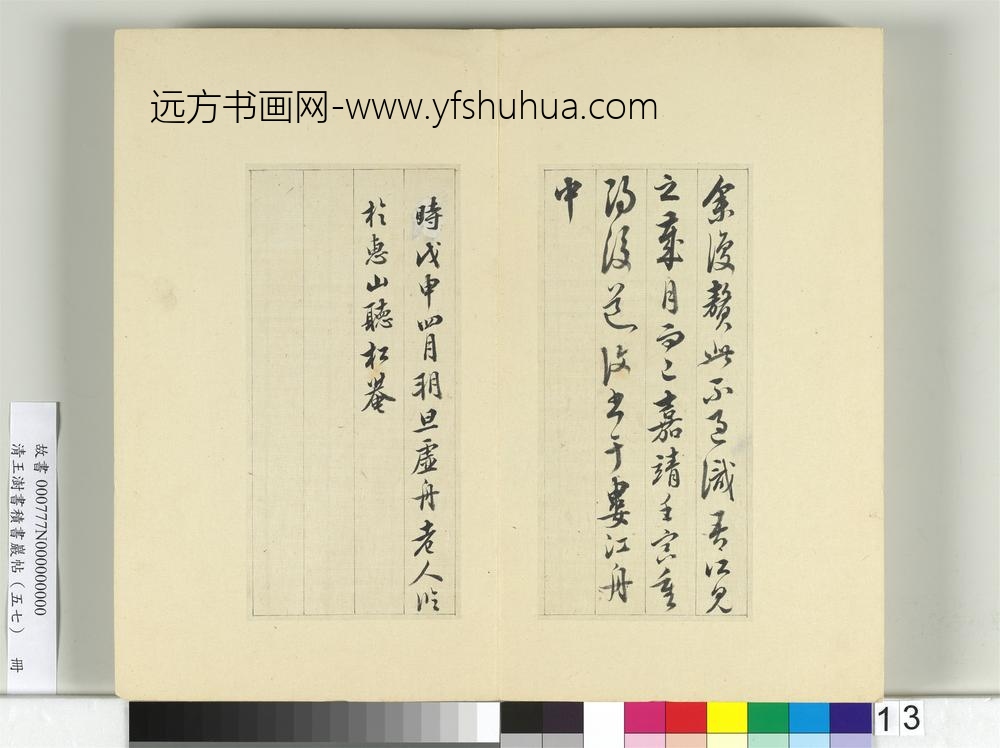 远方书画网-www.yfshuhua.com
余復贅此不過識吾所見
之歲月而已嘉靖壬寅重
陽後道復書于婁江舟
中
時戊申四月朔旦虛舟老人臨
於惠山聽松菴
故書 000777N000000000
清王澍書積書巖帖(五七) 冊
13